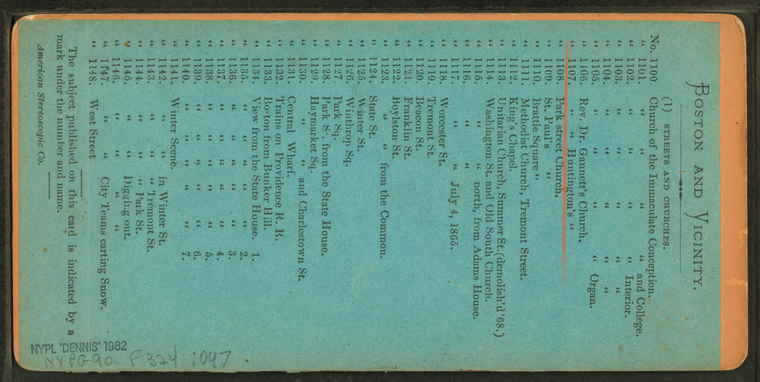 BOSTON AND VICINITY.
(1) STREETS AND CHURCHES.
No. 1100 Church of the Immaculate Conception.
" 1101. " " " " and College.
" 1102. " " " " Interior.
" 1103. " " " " "
" 1104. " " " " "
" 1105. " " " " Organ.
" 1106. Rev. Dr. Gannett's Church.
" 1107. " " Huntington's "
" 1108. Park street Church.
" 1109. St. Paul's "
" 1110 Brattle Square "
" 1111. Methodist Church, Tremont Street.
" 1112. King's Chapel.
" 1113. Unitarian Church, Summer St. (demolish'd '68.)
" 1114. Washington St. and Old South Church.
" 1115. " " north, from Adams House.
" 1116. " "
" 1117. " " July 4, 1865.
" 1118. Worcester St.
" 1119. Tremont St.
" 1120. Beacon St.
" 1121. Franklin St.
" 1122. Boylston St.
" 1123. " " from the Common.
" 1124. State St.
" 1125. Winter St.
" 1126. Winthrop Sq.
" 1127. Park Sq.
" 1128. Park St. from the State House.
" 1129. Haymarket Sq.
" 1130. " " and Charlestown St.
" 1131. Central Wharf.
" 1132. Trains on Providence R. R.
" 1133. Boston from Bunker Hill.
" 1134. View from the State House. 1.
" 1135. " " " " 2.
" 1136. " " " " 3.
" 1137. " " " " 4.
" 1138. " " " " 5.
" 1139. " " " " 6.
" 1140. " " " " 7.
" 1141. Winter Scene.
" 1142. " " in Winter St.
" 1143. " " " Tremont St.
" 1144. " " " Park St.
" 1145. " " Digging out.
" 1146. " " "
" 1147. " " City Teams carting Snow.
" 1148. West Street
The subject published on this card is indicated by a
mark under the number and name.
American Stereoscopic Co.
NYPL 'DENNIS' 1982